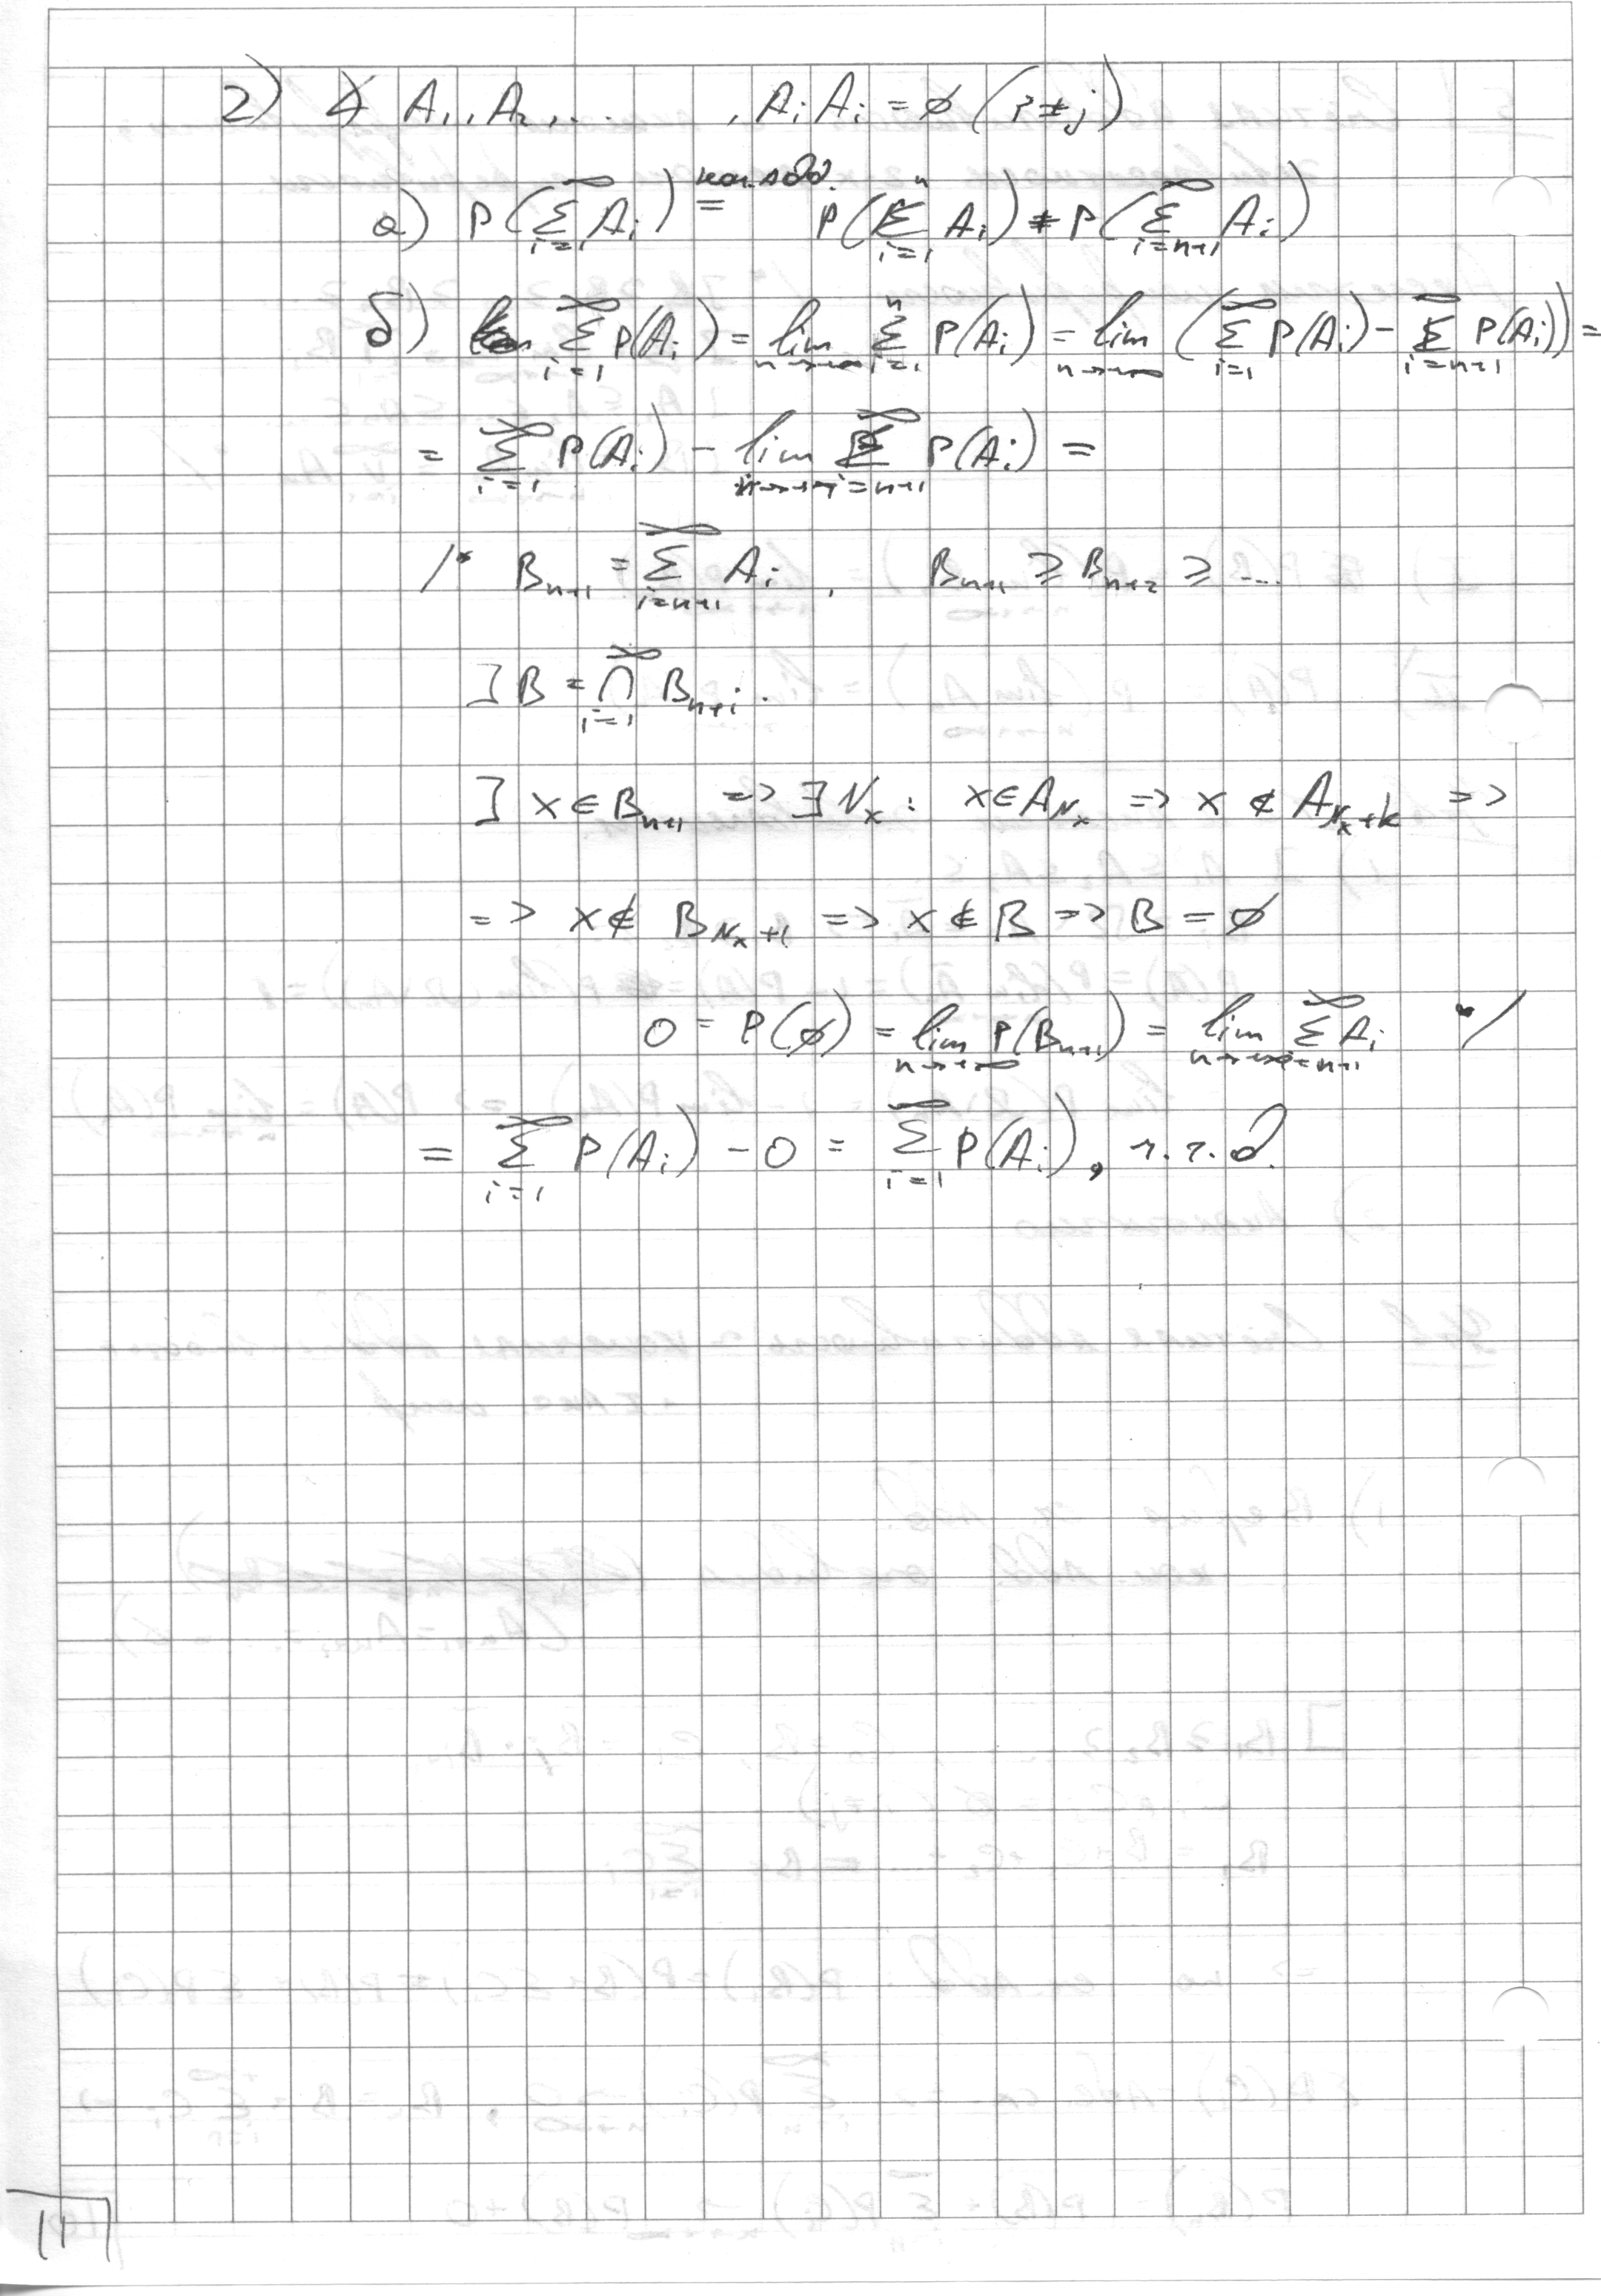 2) ∢ A₁, A₂, ... , AᵢAᵢ = ∅ (i≠j)
а) P(∑_{i=1}^∞ Aᵢ) =^{кон. адд.} P(∑_{i=1}^n Aᵢ) + P(∑_{i=n+1}^∞ Aᵢ)
б) ∑_{i=1}^∞ P(Aᵢ) = lim_{n→∞} ∑_{i=1}^n P(Aᵢ) = lim_{n→∞} (∑_{i=1}^∞ P(Aᵢ) - ∑_{i=n+1}^∞ P(Aᵢ)) =
= ∑_{i=1}^∞ P(Aᵢ) - lim_{n→+∞} ∑_{i=n+1}^∞ P(Aᵢ) =
/* B_{n+1} = ∑_{i=n+1}^∞ Aᵢ , B_{n+1} ⊇ B_{n+2} ⊇ ...
] B = ∩_{i=1}^∞ B_{n+i} .
] x ∈ B_{n+1} => ∃ Nₓ : x ∈ A_{Nₓ} => x ∉ A_{Nₓ+k} =>
=> x ∉ B_{Nₓ+1} => x ∉ B => B = ∅
0 = P(∅) = lim_{n→+∞} P(B_{n+1}) = lim_{n→+∞} ∑_{i=n+1}^∞ Aᵢ */
= ∑_{i=1}^∞ P(Aᵢ) - 0 = ∑_{i=1}^∞ P(Aᵢ), ч.т.д.
11